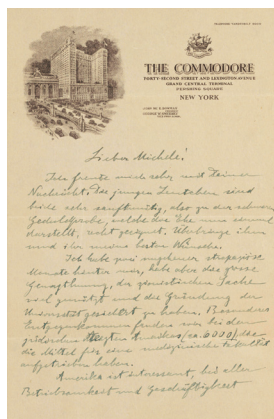 THE COMMODORE
FORTY-SECOND STREET AND LEXINGTON AVENUE
GRAND CENTRAL TERMINAL
PERSHING SQUARE
NEW YORK
Lieber Michele!
Ich freute mich sehr mit Deiner
Nachricht. Die jungen Leutchen sind
beide sehr sanftmütig, also zu der schweren
Geduldsprobe, welche die Ehe nun einmal
darstellt, recht geeignet. Überbringe ihnen
und ihr meine besten Wünsche.
Ich habe zwei ungeheuer strapaziöse
Monate hinter mir, habe aber das grosse
Genugthuung, der zionistischen Sache
viel genützt und die Gründung der
Universität gesichert zu haben. Besonderes
Entgegenkommen fanden wir bei den
jüdischen Ärzten Amerikas (ca. 6000), das
die Mittel für eine medizinische Fakultät
aufgetrieben haben.
Amerika ist interessant, bei aller
Betriebsamkeit und Geschäftigkeit